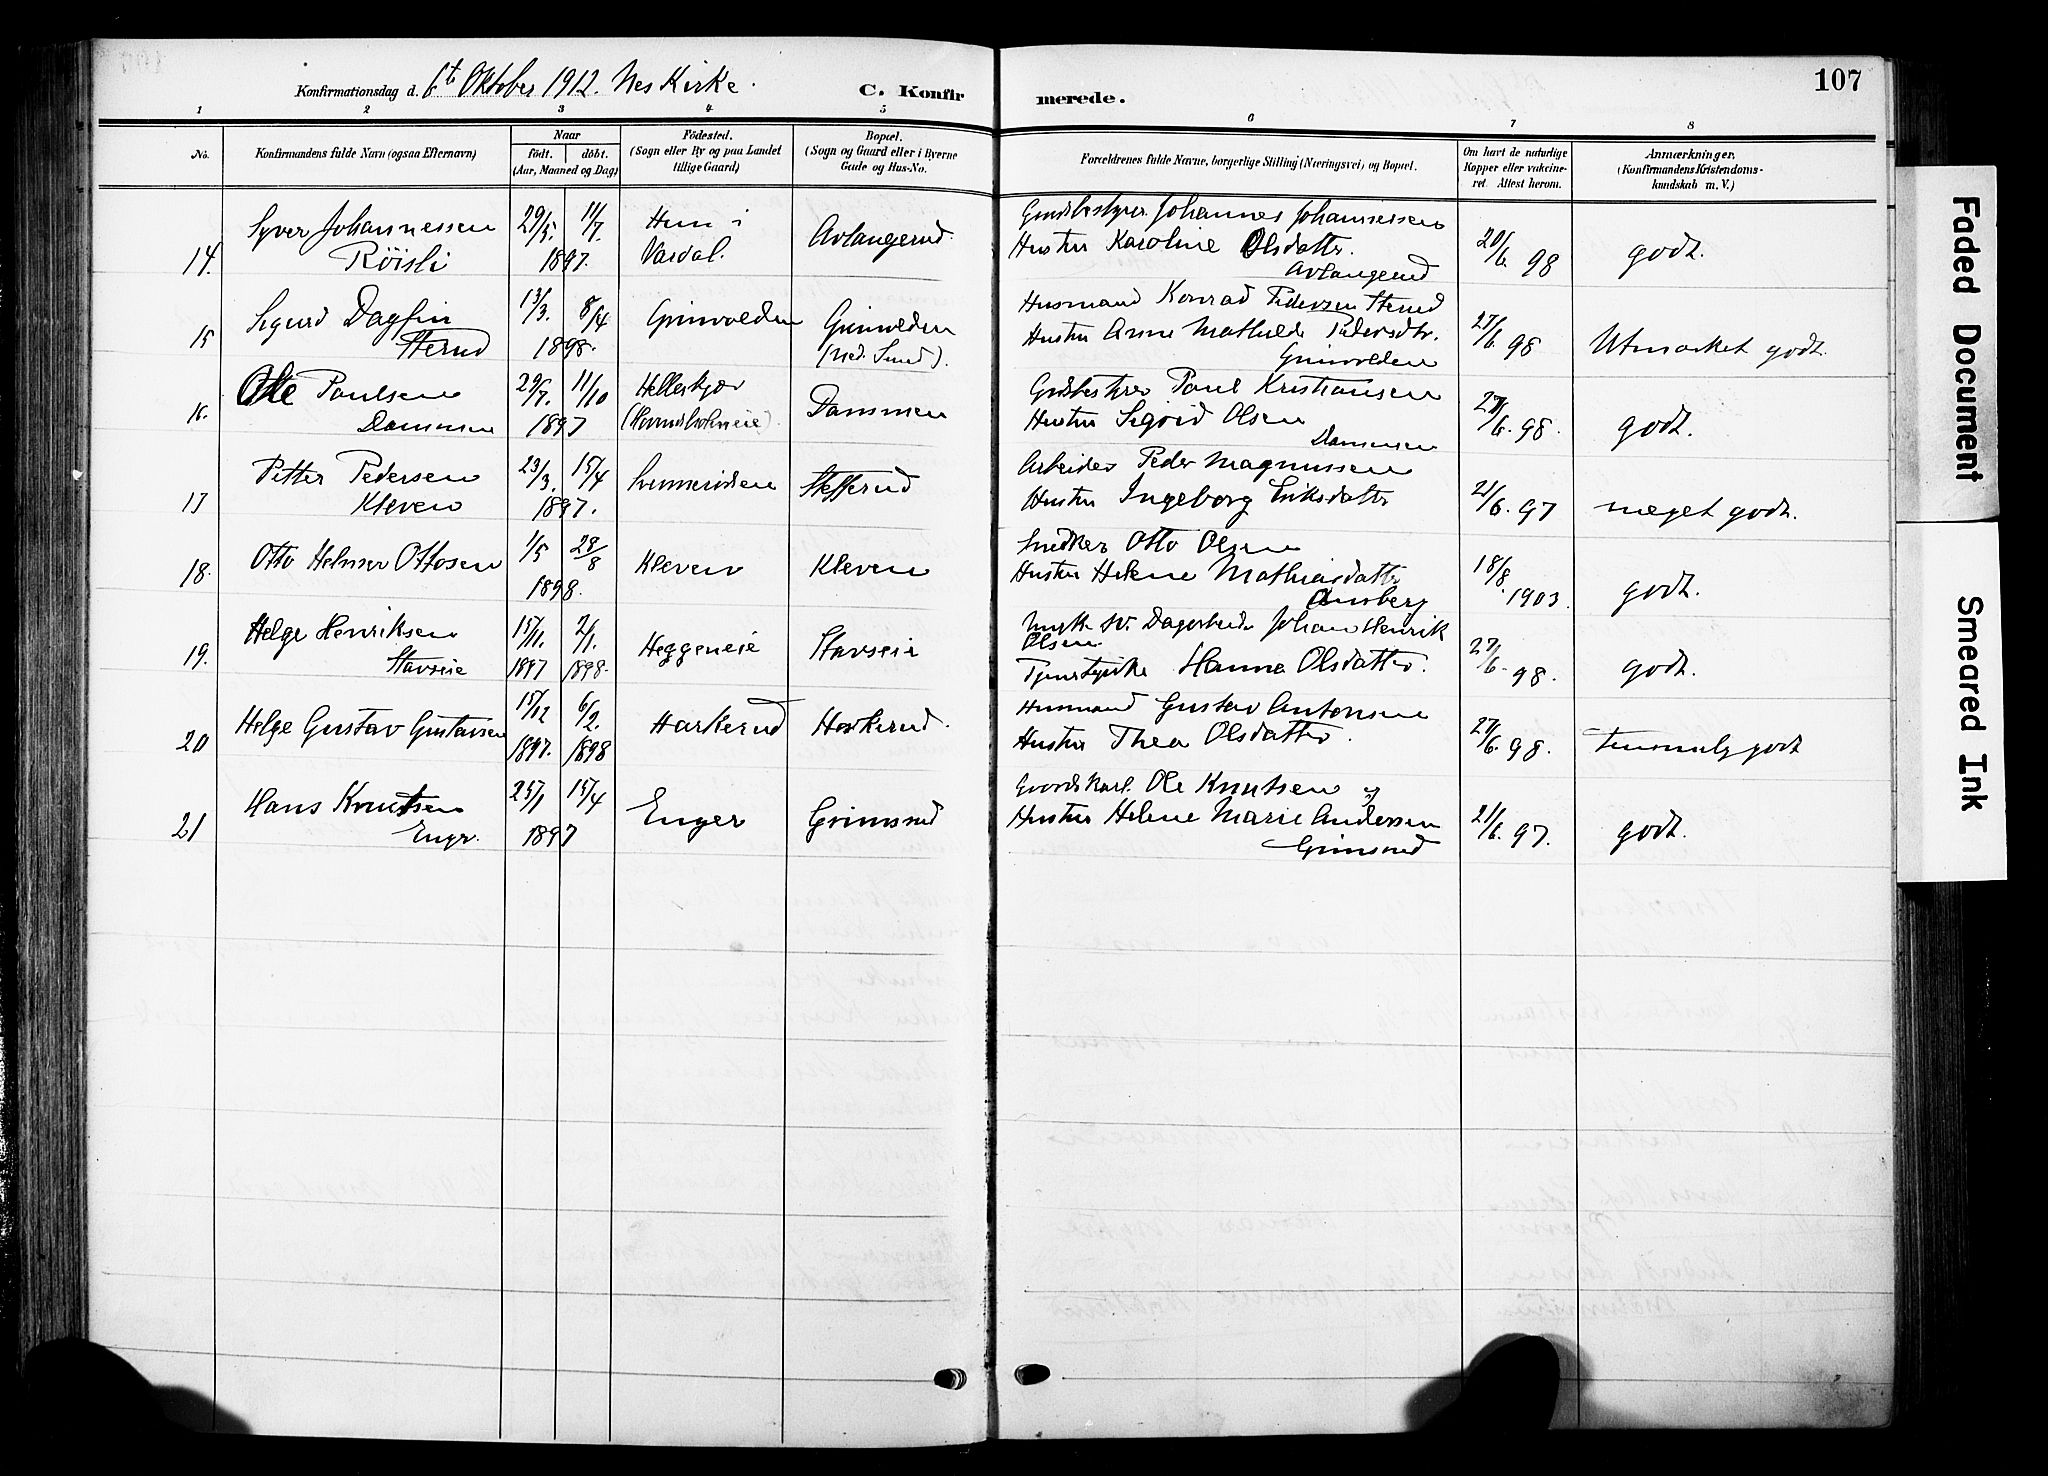 107
Konfirmationsdag d. 6te Oktober 1912. Nes Kirke. C. Konfirmerede.
1 2 3 4 5 6 7 8
No.
Konfirmandens fulde Navn (ogsaa Efternavn)
Naar
födt. döbt.
(Aar, Maaned og Dag)
Födested.
(Sogn eller By og paa Landet
tillige Gaard)
Bopæl.
(Sogn og Gaard eller i Byerne
Gade og Hus-No.
Forældrenes fulde Navne, borgerlige Stilling (Næringsvei) og Bopæl.
Om havt de naturlige
Kopper eller vakcine-
ret. Attest herom.
Anmærkninger,
(Konfirmandens Kristendoms-
kundskab m. V.)
14. Syver Johannessen Röisli 29/5. 11/7. 1897. Hun i Vardal. Avlangerud.
Johannes Johannessen
Hustru Karoline Olsdatter. Avlangerud
20/6. 98 godt.
15 Sigurd Dagfin Sterud 13/3. 8/4 1898. Grinvolden Grinvolden (ned. Sund).
Husmand Konrad Pedersen Sterud
Hustru Anne Mathilde Pedersdtr. Grinvolden
27/6. 98 Utmærket godt.
16. Ole Paulsen Dammen 29/7. 11/10 1897 Dammen
Paul Kristiansen
Hustru Sigrid Olsen Dammen
27/6. 98. godt.
17 Petter Pedersen Kleven 23/3. 15/4 1897. Stefferud
Arbeider Peder Magnussen
Hustru Ingeborg Eriksdatter
21/6. 97 meget godt.
18. Otto Helmer Ottosen 1/5 28/8 1898. Kleven Kleven
Snedker Otto Olsen
Hustru Helene Mathiasdatter
18/8. 1903. godt.
19. Helge Henriksen Stavseie 15/11. 1897 2/1. 1898. Heggeneie Stavseie
Ungk. Johan Henrik
Olsen
Tjenestepike Hanna Olsdatter.
27/6. 98. godt.
20 Helge Gustav Gustavsen 15/12 1897. 6/2. 1898 Harkerud Harkerud.
Husmand Gustav Antonsen
Hustru Thea Olsdatter.
27/6. 98. temmelig godt
21 Hans Knutsen Enger. 25/1 15/4 1897 Enger Grimsrud
Gaardskarl. Ole Knutsen og
Hustru Helene Marie Andersen Grimsrud
21/6. 97. godt.
Faded Document
Smeared Ink